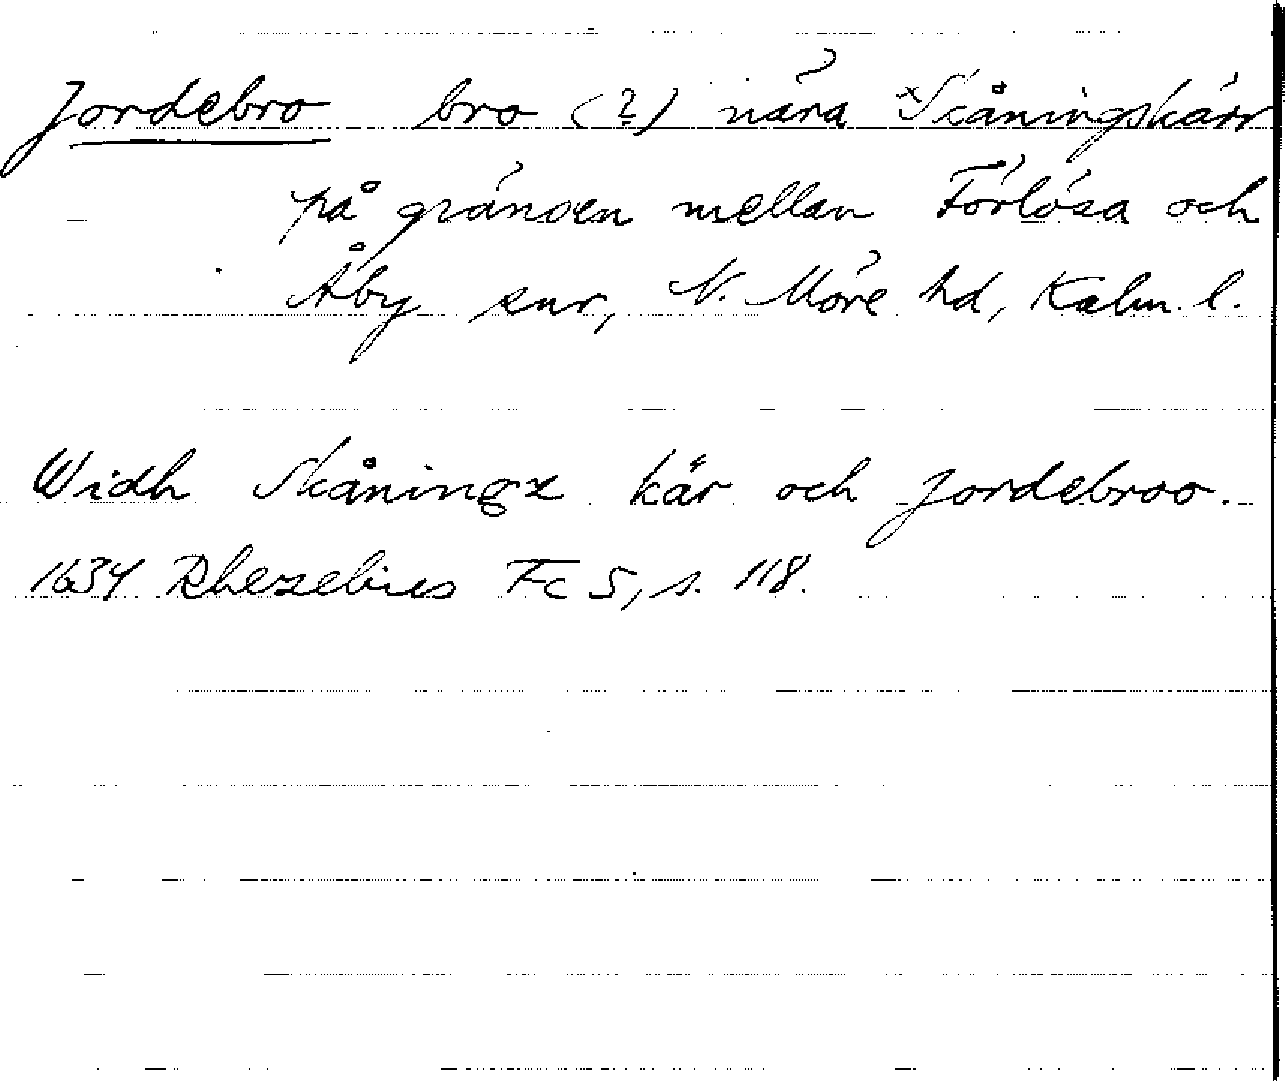 Jordebro bro (?) nära ˣSkåningskärr
på gränsen mellan Förlösa och
Åby snr, N. Möre hd, Kalm. l.
Widh Skåningx kär och Jordebroo.
1634 Rhezelius Fc 5, s. 118.